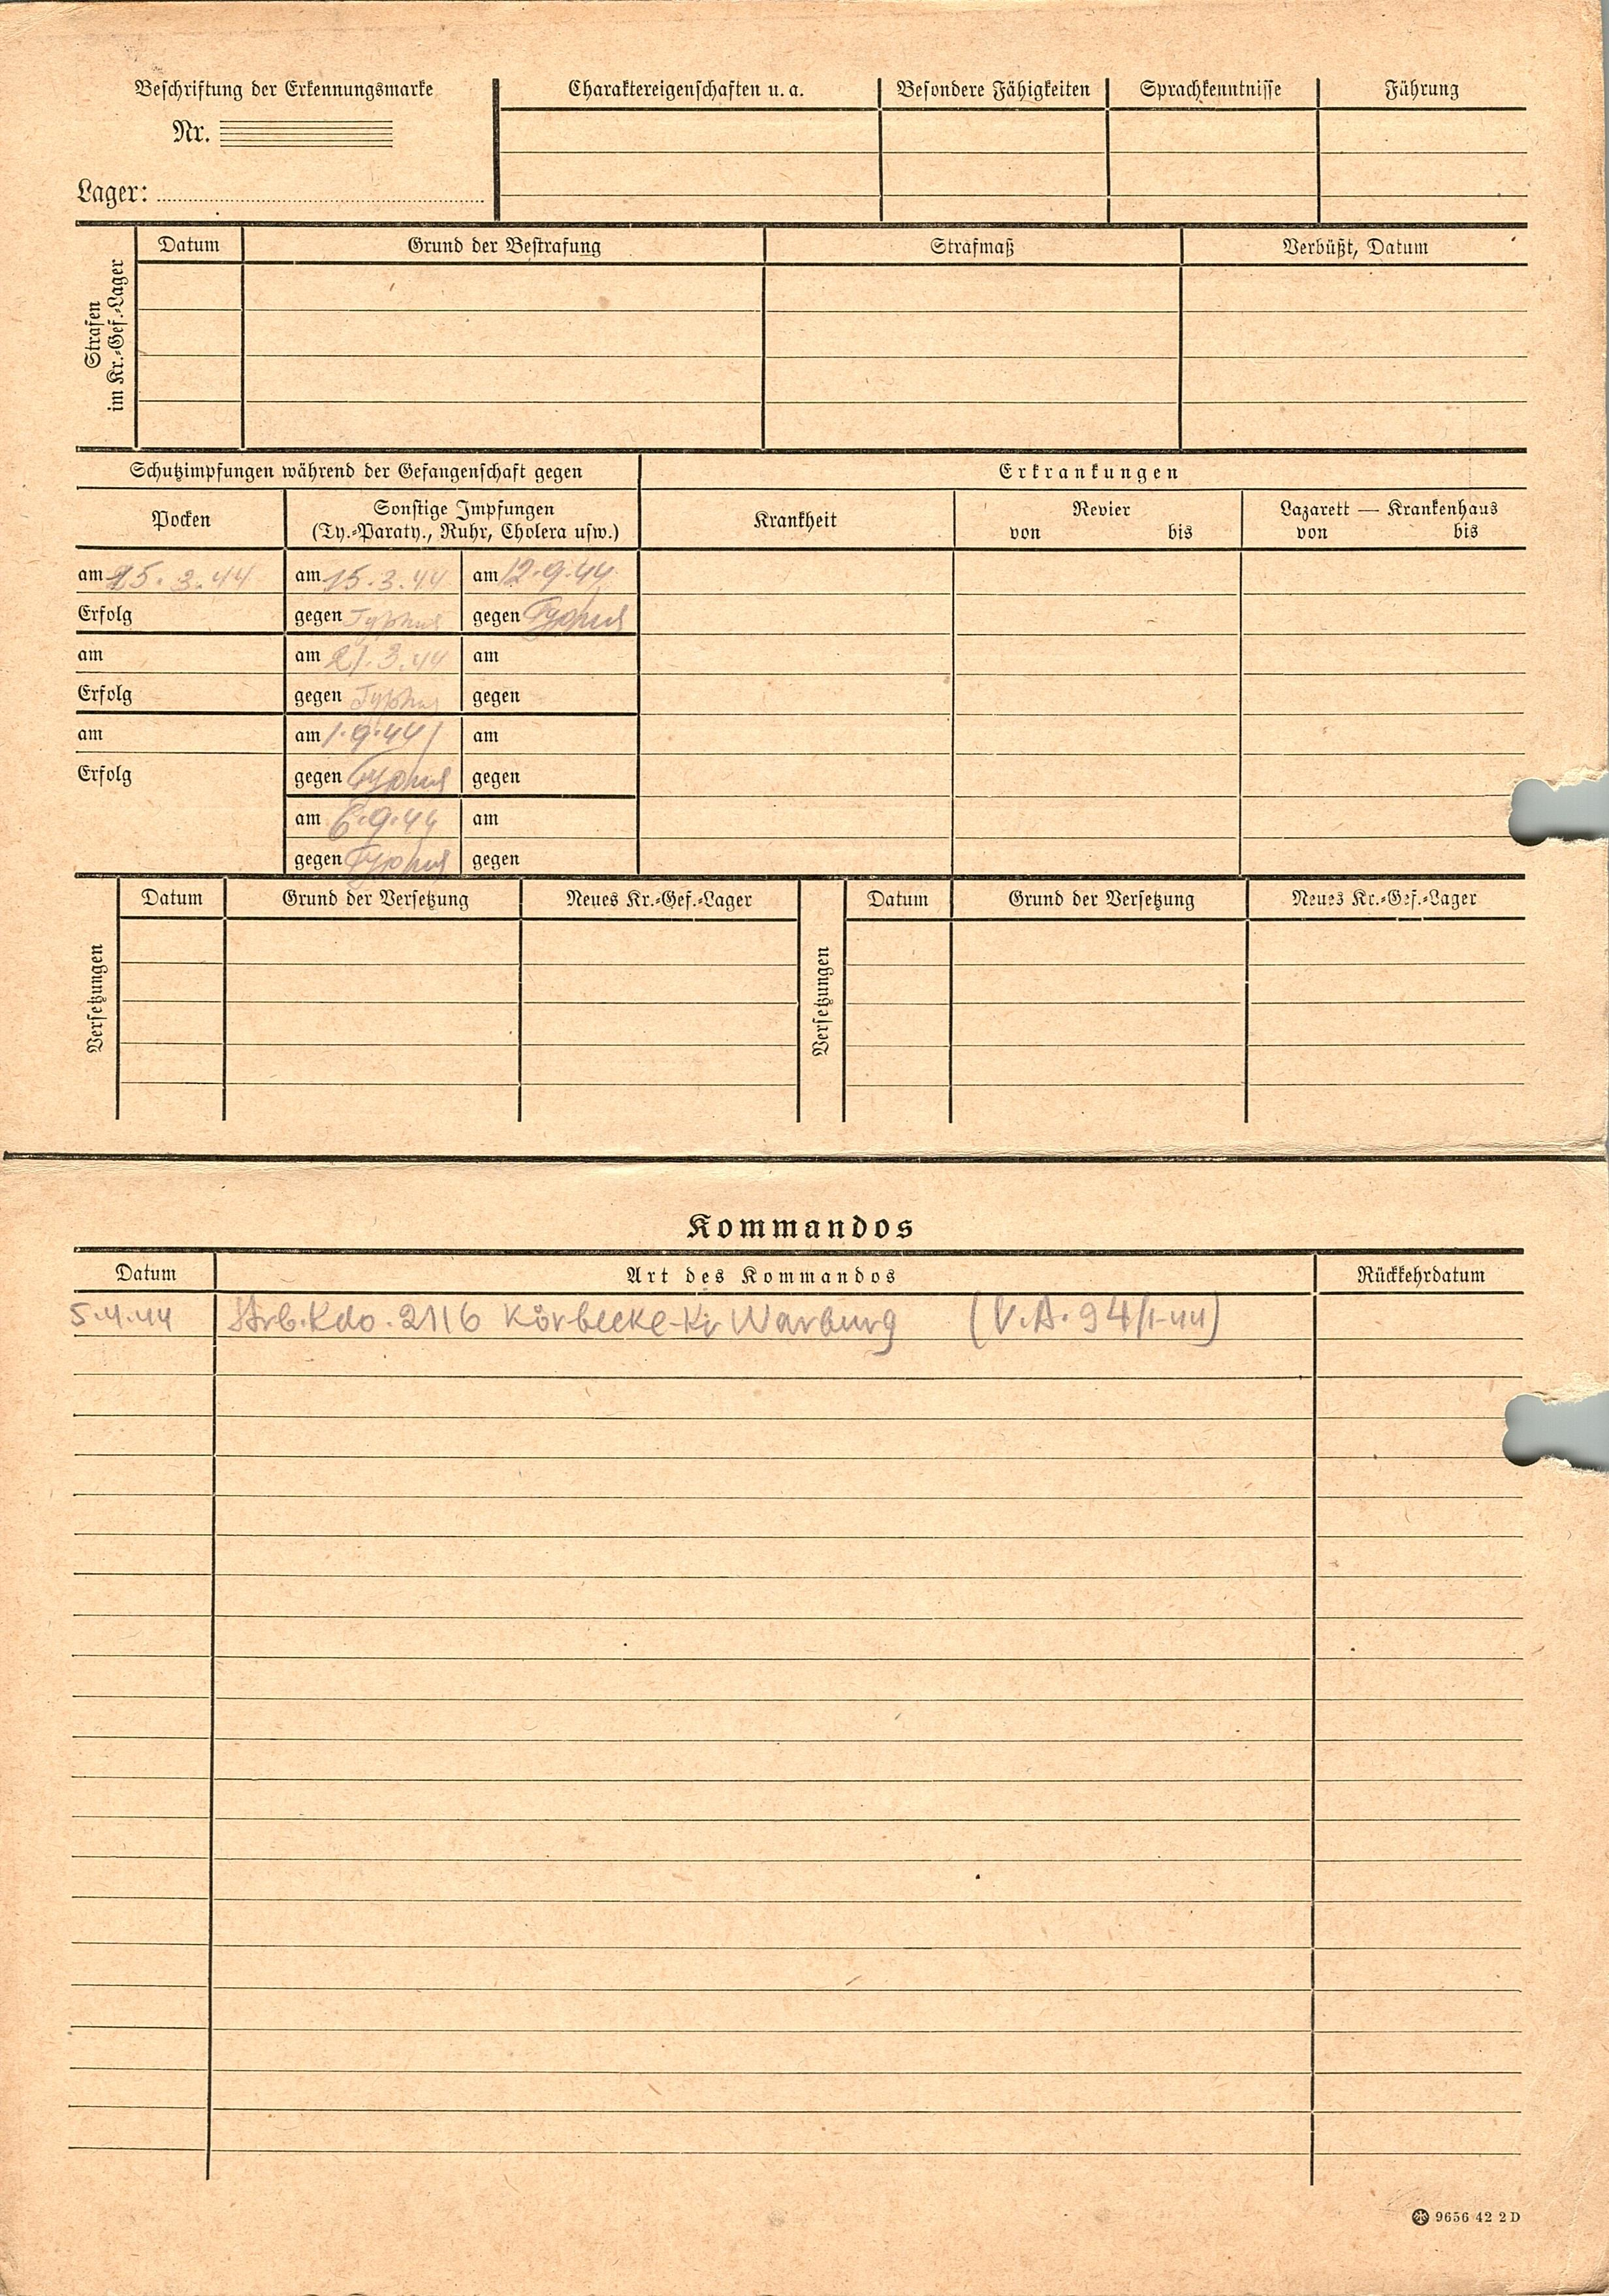 Beschriftung der Erkennungsmarke
Nr.
Lager:
Charaktereigenschaften u. a.
Besondere Fähigkeiten
Sprachkenntnisse
Führung
Strafen
im Kr.-Gef.-Lager
Datum
Grund der Bestrafung
Strafmaß
Verbüßt, Datum
Schutzimpfungen während der Gefangenschaft gegen
Erkrankungen
Pocken
Sonstige Impfungen
(Ty.-Paraty., Ruhr, Cholera usw.)
Krankheit
Revier
von bis
Lazarett — Krankenhaus
von bis
am 25.3.44 am 15.3.44 am 12.9.44
Erfolg gegen Typhus gegen Typhus
am am 21.3.44 am
Erfolg gegen Typhus gegen
am am 1.9.44 am
Erfolg gegen Typhus gegen
am 6.9.44 am
gegen Typhus gegen
Versetzungen
Datum
Grund der Versetzung
Neues Kr.-Gef.-Lager
Versetzungen
Datum
Grund der Versetzung
Neues Kr.-Gef.-Lager
Kommandos
Datum
Art des Kommandos
Rückkehrdatum
5.4.44 Arb.Kdo. 2116 Körbecke-Kr Warburg (V.A. 94/1-44)
9656 42 2 D